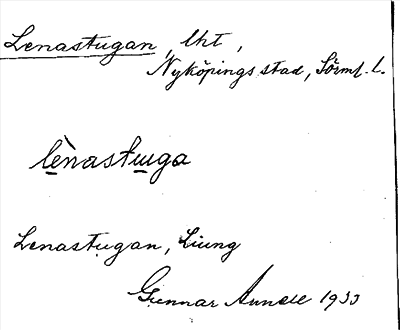 Lenastugan, lht,
Nyköpings stad, Sörml. l.
lènastuga
Lenastugan, Liung
Gunnar Annell 1933